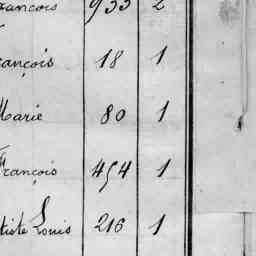 François 933 2
François 18 1
Marie 80 1
François 454 1
tiste Louis 216 1